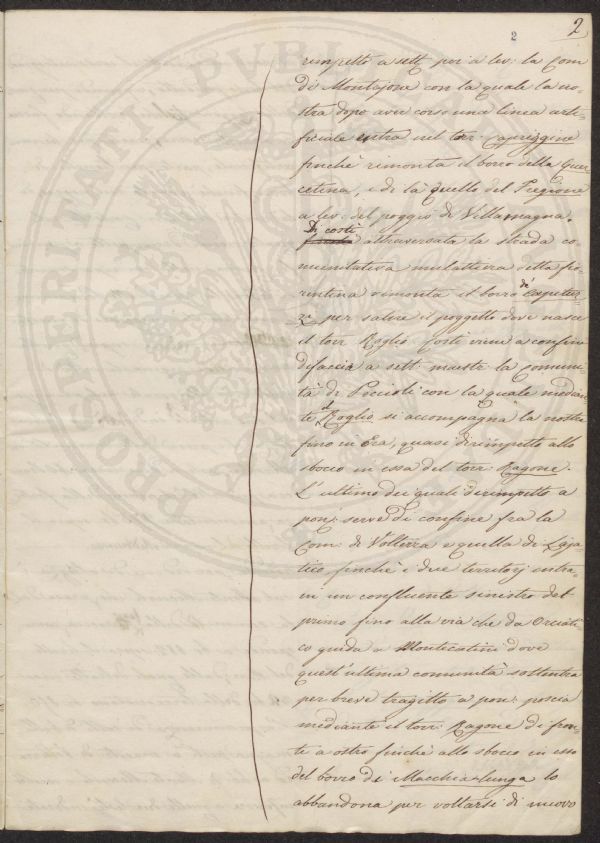 2
2
rimpetto a sett. poi a lev: la Com
di Montajone con la quale la no-
stra dopo aver corso una linea arti-
ficiale entra nel torr: Capriggine
finchè rimonta il borro della Quer-
cetina, e di là quello del Fregione
a lev: del poggio di Villamagna.
Di costì
attraversata la strada co-
munitativa mulattiera detta fio-
rentina rimonta il borro de' Capitez
za per salire il poggetto dove nasce
il torr. Roglio. Costì viene a confine
difaccia a sett: maest: la Comuni-
tà di Peccioli con la quale median-
te il Roglio si accompagna la nostra
fino in Era, quasi dirimpetto allo
sbocco in essa del torr: Ragone.
L'ultimo dei quali dirimpetto a
pon: serve di confine fra la
Com: di Volterra e quella di Laja-
tico, finchè i due territorj entra-
in un confluente sinistro del
primo fino alla via che da Orciati-
co guida a Montecatini dove
quest'ultima comunità sottentra
per breve tragitto a pon: poscia
mediante il torr: Ragone di fron-
te a ostro finchè allo sbocco in esso
del borro di Macchia-lunga lo
abbandona per voltarsi di nuovo
PROSPERITATI PVBLICAE